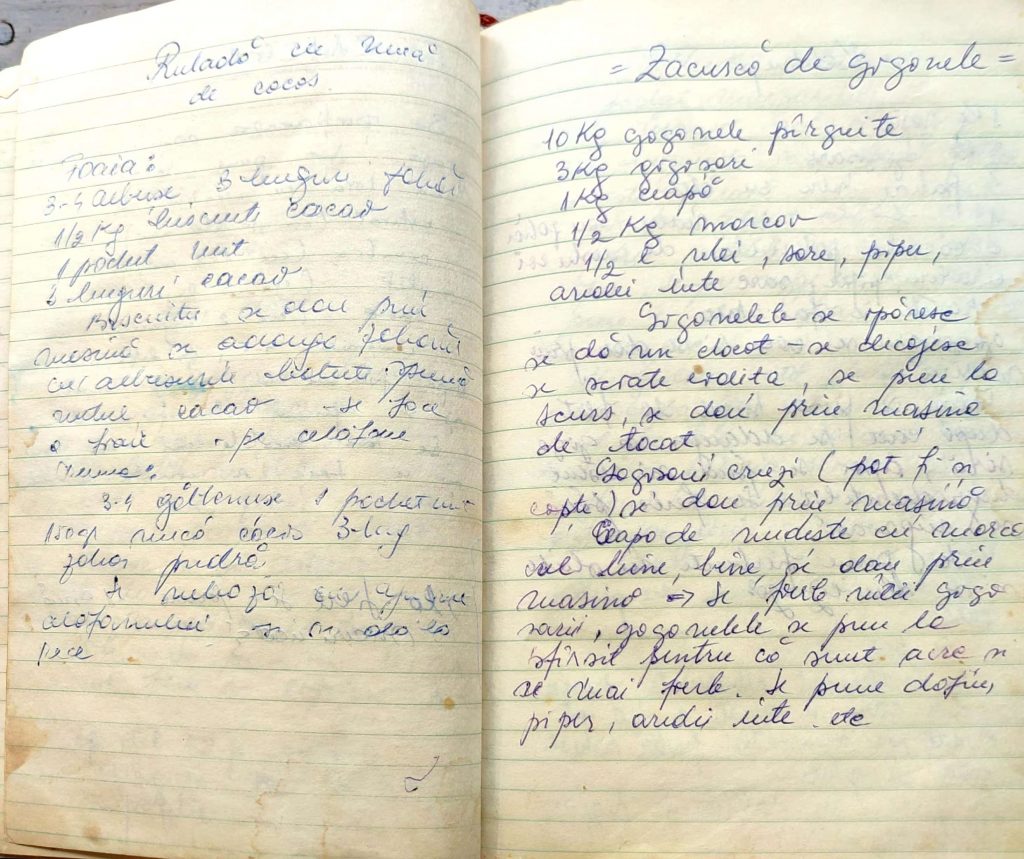 Ruladă cu cremă
de cocos
Foaia:
3-4 albușe 3 linguri zahăr
1/2 Kg biscuiti cacao
1 pachet unt
2 linguri cacao
Biscuitii se dau prin
mașină se adaugă zahărul
cu albușurile bătute spumă
untul, cacao - se face
o foaie pe celofan
Crema:
3-4 gălbenușe 1 pachet unt
150gr nucă cocos 3 ling
zahăr pudră
Se rulează cu
celofanului se dă la
rece
= Zacuscă de gogonele =
10 Kg gogonele pîrguite
3 Kg gogosari
1 Kg ceapă
1/2 Kg morcov
1/2 l ulei, sare, piper,
ardei iute
Gogonelele se opăresc
se dă un clocot - se decojesc
se scoate codita, se pun la
scurs, se dau prin masină
de tocat
Gogosarii cruzi (pot fi si
copți) se dau prin masină
Ceapa de nudiste cu morco
vul bine, bine, si dau prin
masină => Se fierb întîi gogo
sarii, gogonelele se pun la
sfîrsit pentru că sunt acre si
se mai fierb. Se pune dafin,
piper, ardei iute etc